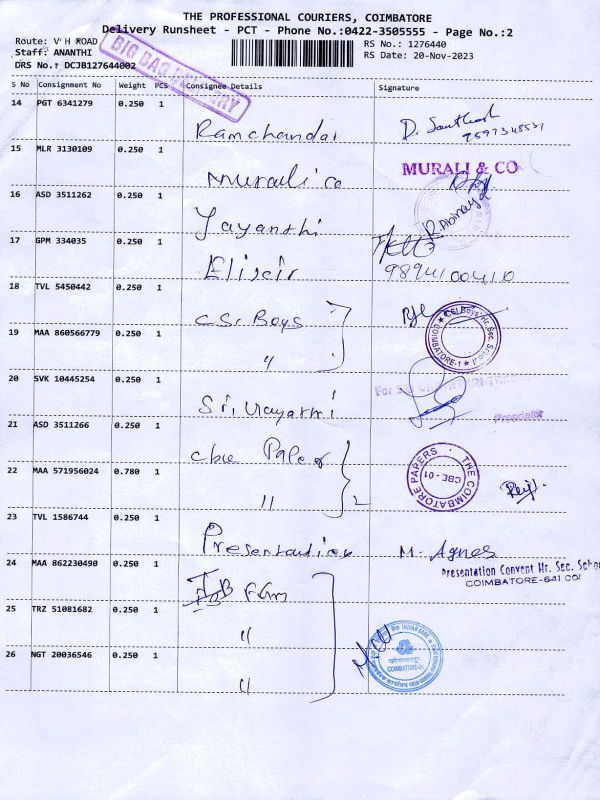 THE PROFESSIONAL COURIERS, COIMBATORE
Delivery Runsheet - PCT - Phone No.:0422-3505555 - Page No.:2
Route: V H ROAD
Staff: ANANTHI
DRS No.: DCJB127644002
BIG BAG DELIVERY
RS No.: 1276440
RS Date: 20-Nov-2023
S No Consignment No Weight PCS Consignee Details Signature
14 PGT 6341279 0.250 1
Ramchandar D. Santhosh
9597348537
15 MLR 3130109 0.250 1
Murali co MURALI & CO
16 ASD 3511262 0.250 1
Jayanthi R. Abinaya
17 GPM 334035 0.250 1
Elixir 9894100410
18 TVL 5450442 0.250 1
CSI Boys
CSI Boys' Hr. Sec. School
COIMBATORE-1
19 MAA 860566779 0.250 1
"
20 SVK 10445254 0.250 1
Sri Vinayathri
For
Proprietor
21 ASD 3511266 0.250 1
cbe Paper
THE COIMBATORE PAPERS
CBE - 01
22 MAA 571956024 0.780 1
" 2
23 TVL 1586744 0.250 1
Presentation M. Agnes
Presentation Convent Hr. Sec. Scho
COIMBATORE-641 001
24 MAA 862230490 0.250 1
25 TRZ 51081682 0.250 1
"
INDIAN BANK
COIMBATORE-01
26 NGT 20036546 0.250 1
"